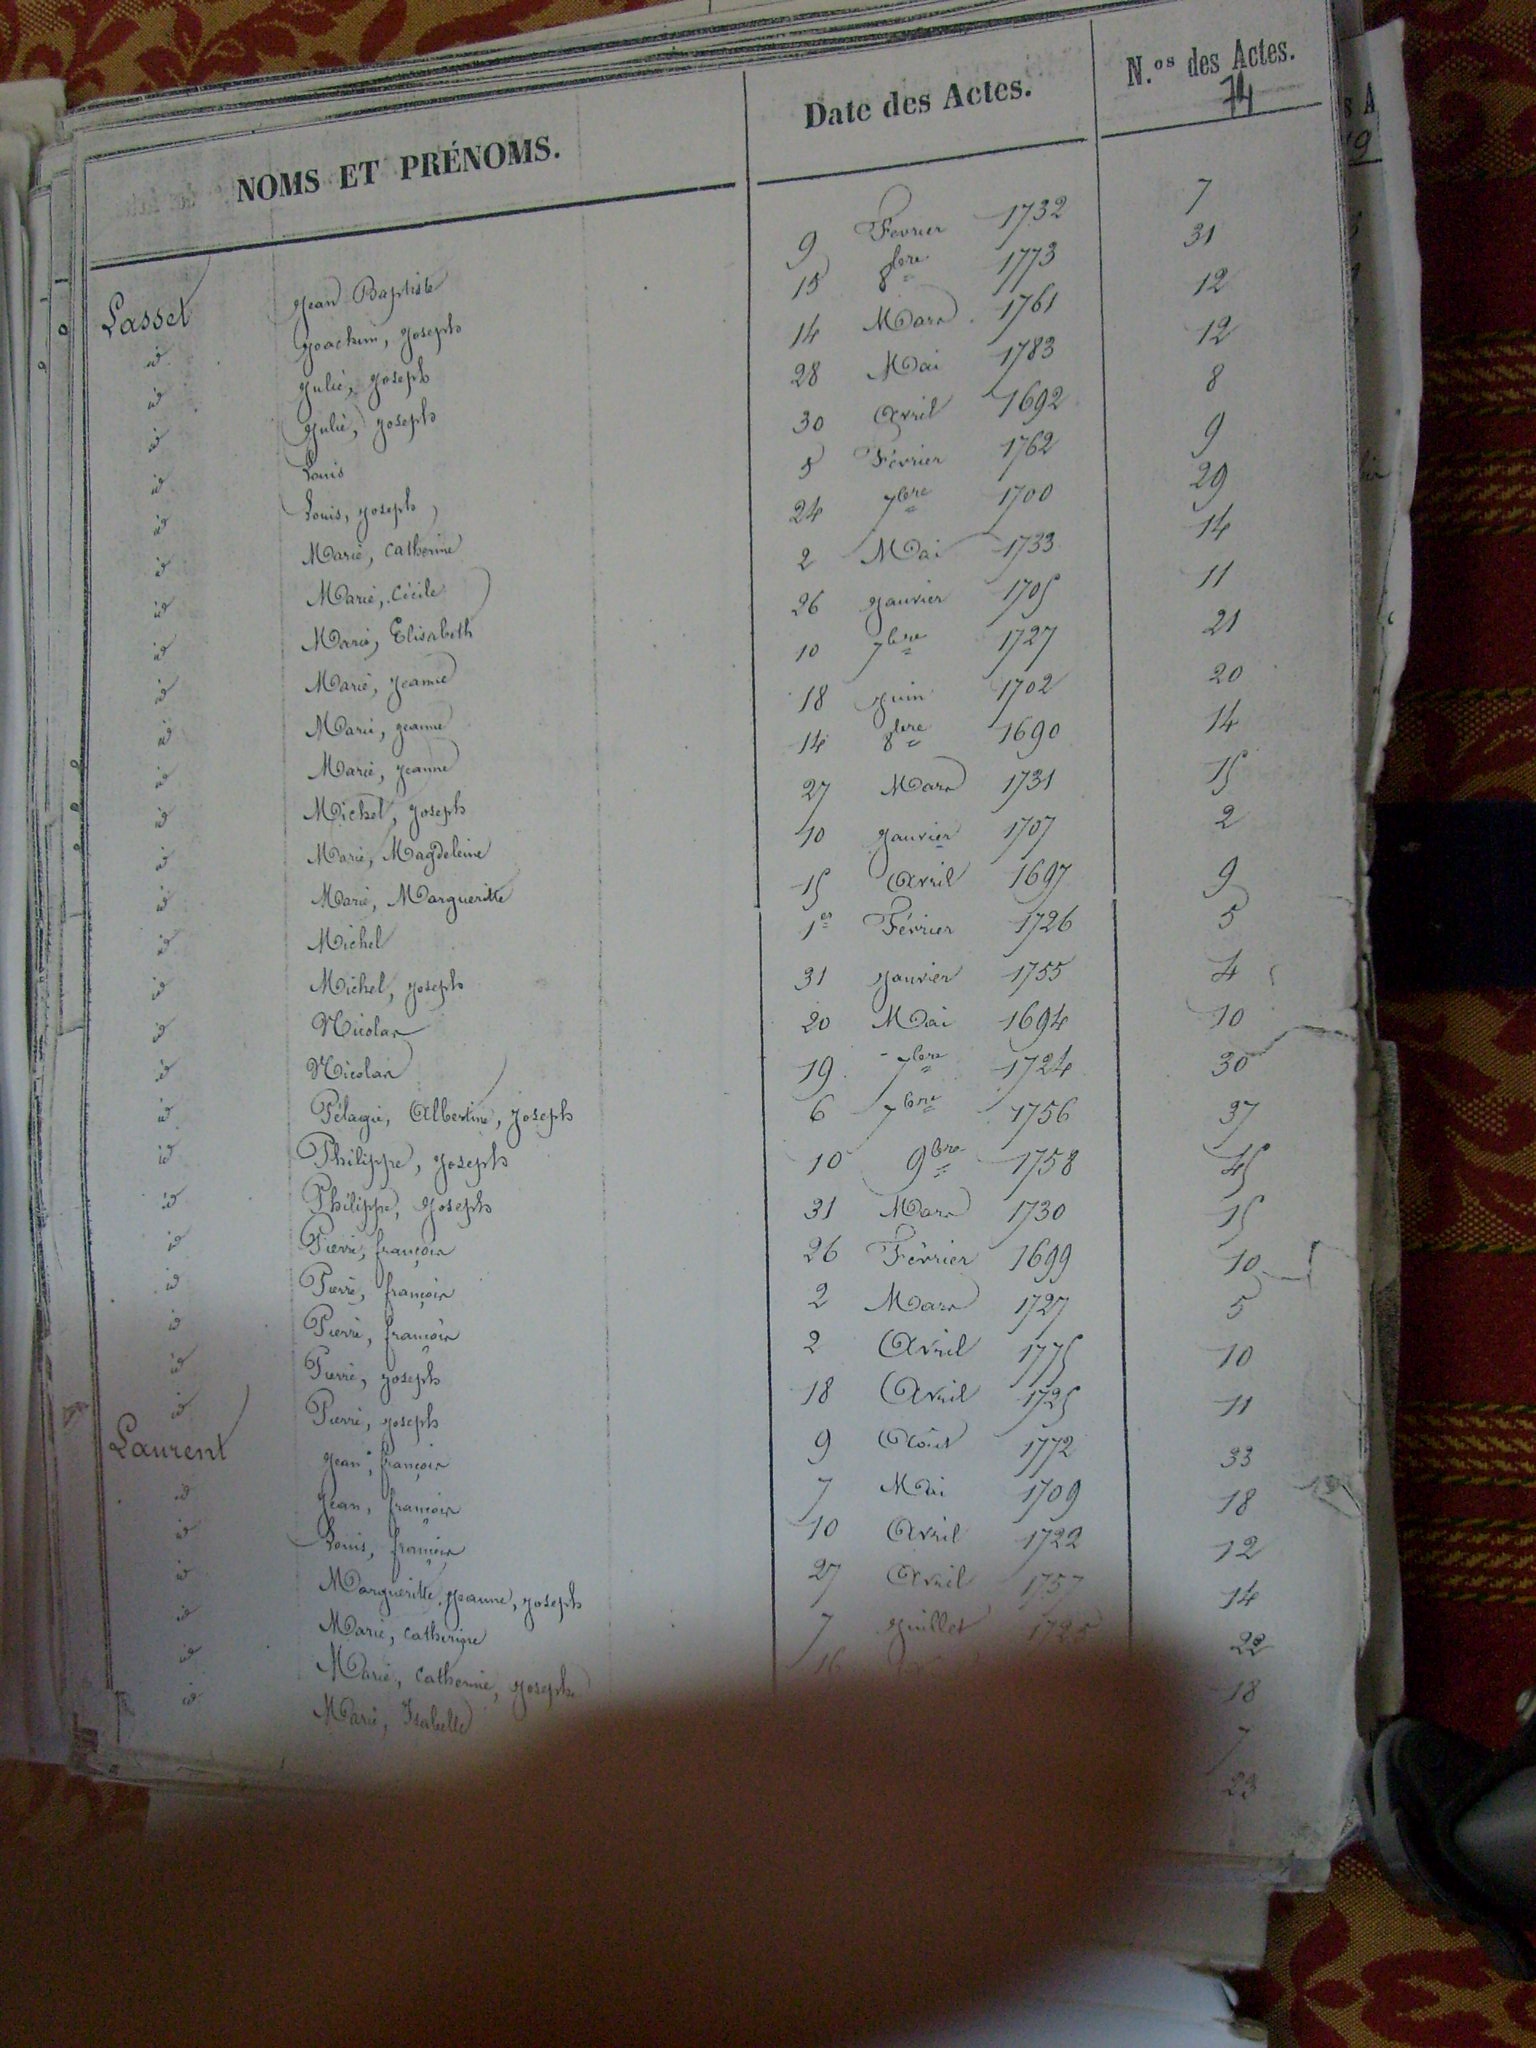 NOMS ET PRÉNOMS. Date des Actes. N.os des Actes.
74
Lasset Jean Baptiste 9 Fevrier 1732 7
id Joachim, Joseph 15 8bre 1773 31
id Julie, Joseph 14 Mars 1761 12
id Julie, Joseph 28 Mai 1783 12
id Louis 30 Avril 1692 8
id Louis, Joseph 8 Février 1762 9
id Marie, Catherine 24 7bre 1700 29
id Marie, Cécile 2 Mai 1733 14
id Marie, Elisabeth 26 Janvier 1705 11
id Marie, Jeanne 10 7bre 1727 21
id Marie, Jeanne 18 Juin 1702 20
id Marie, Jeanne 14 8bre 1690 14
id Michel, Joseph 27 Mars 1731 15
id Marie, Magdeleine 10 Janvier 1707 2
id Marie, Margueritte 15 Avril 1697 9
id Michel 1er Février 1726 5
id Michel, Joseph 31 Janvier 1755 4
id Nicolas 20 Mai 1694 10
id Nicolas 19 7bre 1724 30
id Pélagie, Albertine, Joseph 6 7bre 1756 37
id Philippe, Joseph 10 9bre 1758 45
id Philippe, Joseph 31 Mars 1730 15
id Pierre, françois 26 Février 1699 10
id Pierre, françois 2 Mars 1727 5
id Pierre, françois 2 Avril 1775 10
id Pierre, Joseph 18 Avril 1725 11
id Pierre, Joseph 9 Août 1772 33
Laurent Jean, françois 7 Mai 1709 18
id Jean, françois 10 Avril 1722 12
id Louis, françois 27 Avril 1757 14
id Margueritte, Jeanne, Joseph 7 Juillet 1725 22
id Marie, Catherine 16 18
id Marie, Catherine, Joseph 7
id Marie, Isabelle 23